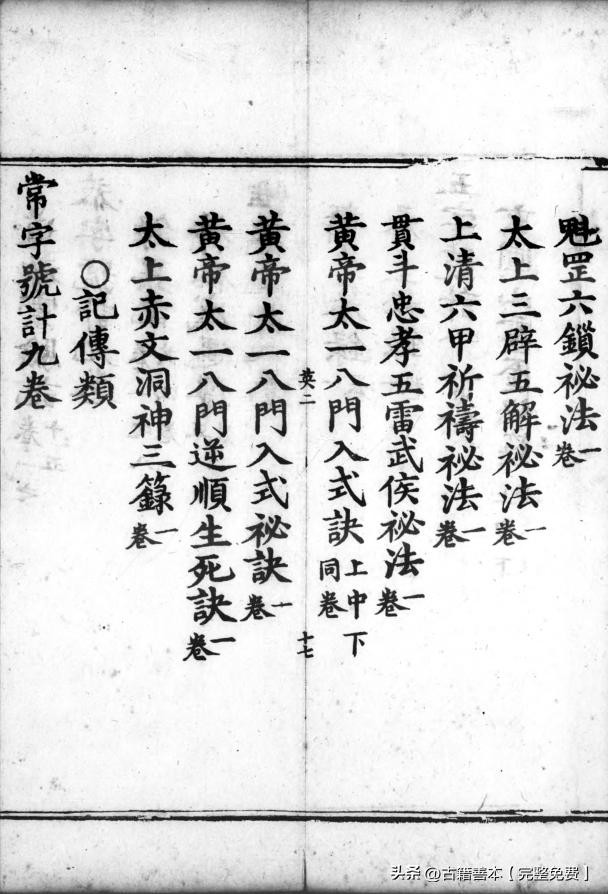 魁罡六鎖祕法一卷
太上三辟五解祕法一卷
上清六甲祈禱祕法一卷
貫斗忠孝五雷武侯祕法一卷
黄帝太一八門入式訣上中下同卷
英二
十七
黄帝太一八門入式祕訣一卷
黄帝太一八門逆順生死訣一卷
太上赤文洞神三籙一卷
○記傳類
常字號計九卷
头条 @古籍善本【完整免费】